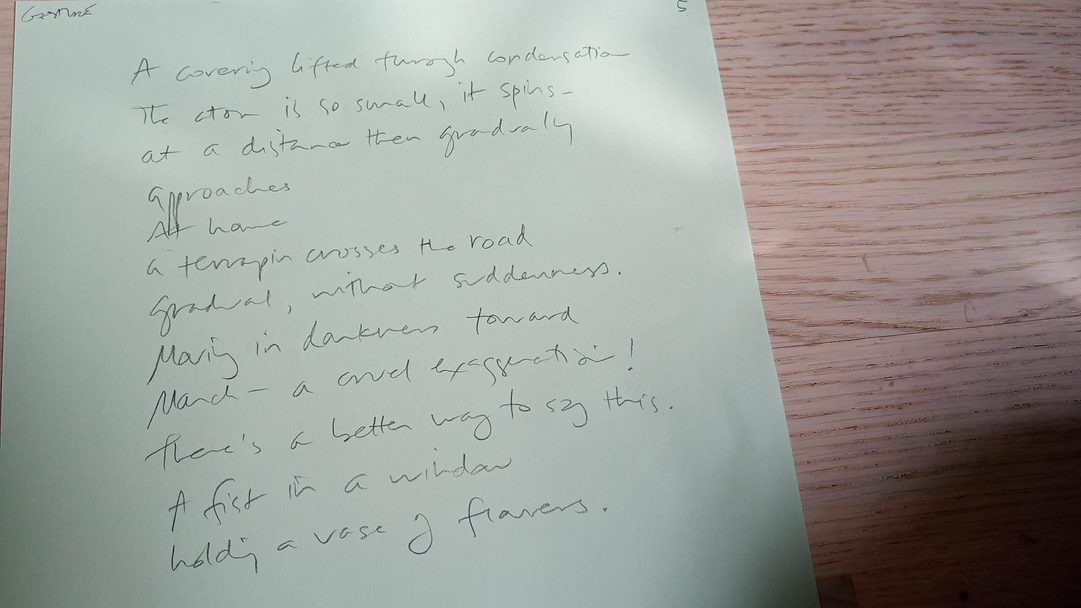 GESTURE
5
A covering lifted through condensation
The atom is so small, it spins –
at a distance then gradually
approaches
At home
a terrapin crosses the road
gradual, without suddenness.
Moving in darkness toward
March – a cruel exaggeration!
There's a better way to say this.
A fist in a window
holding a vase of flowers.